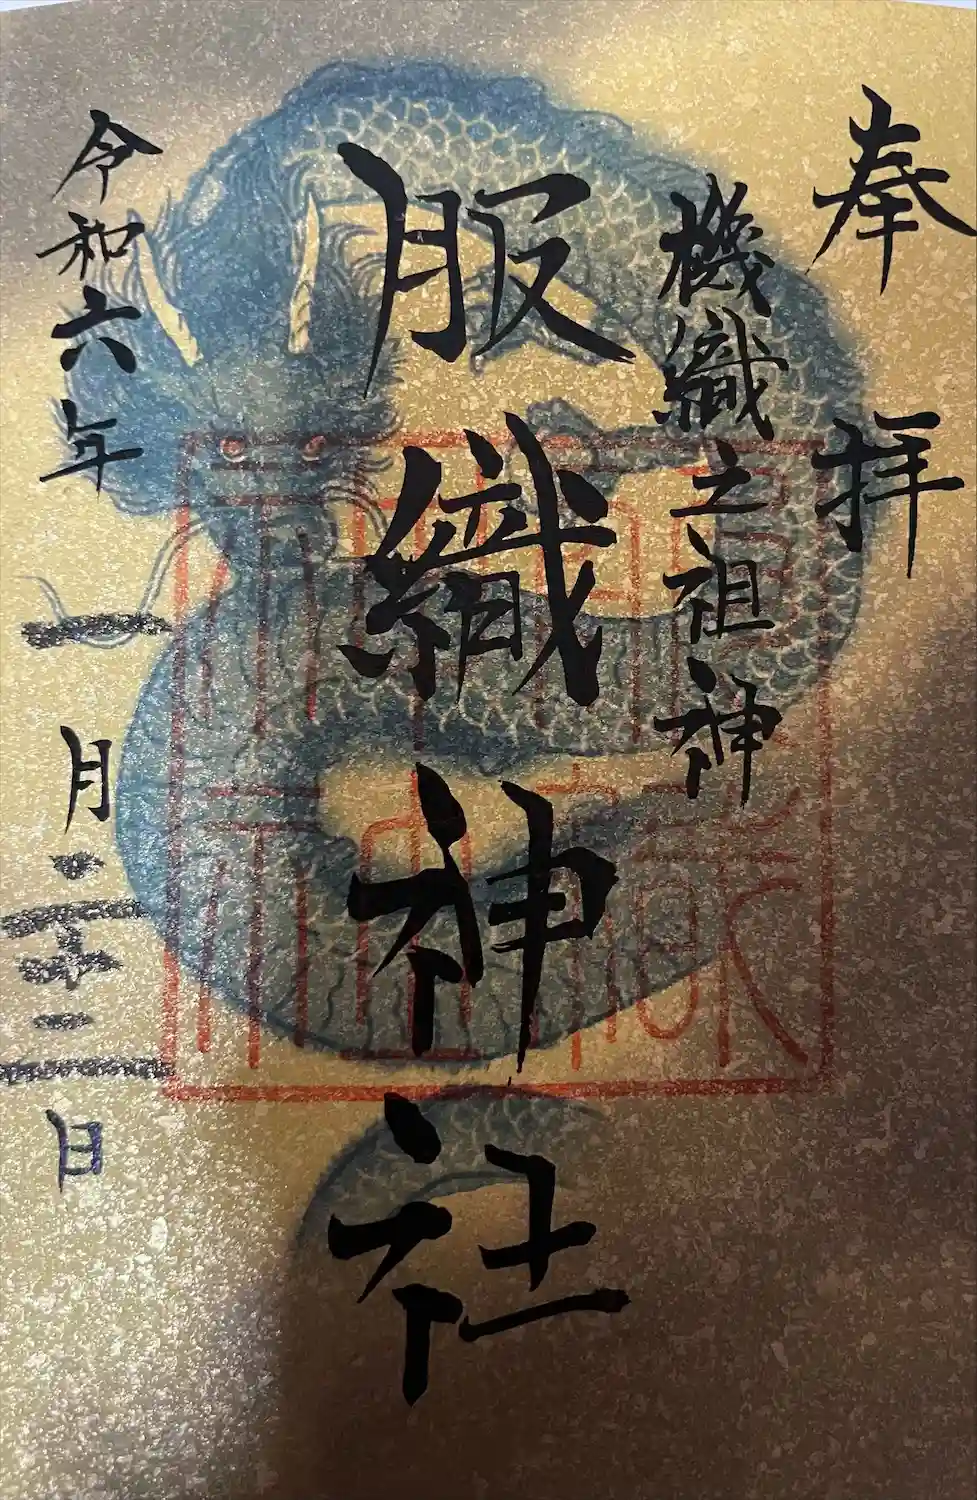 奉拝
機織之祖神
服織神社
令和六年一月二十二日